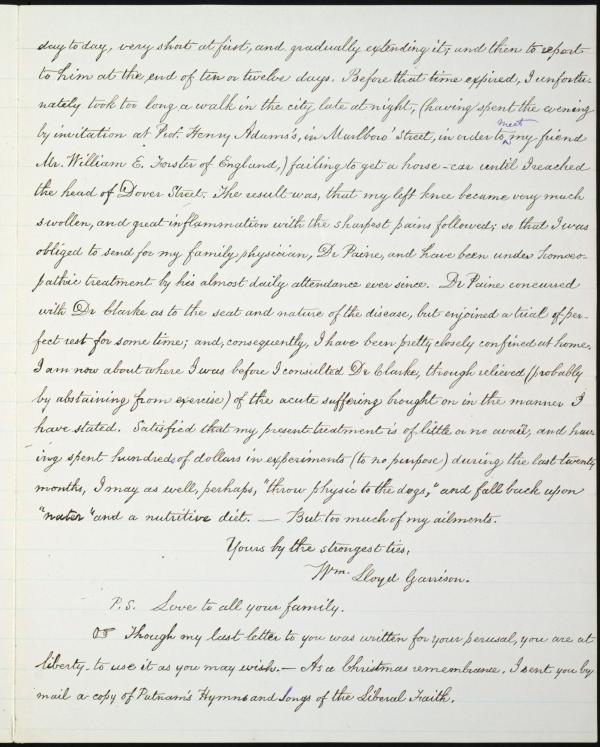 day to day, very short at first, and gradually extending it; and then to report
to him at the end of ten or twelve days. Before that time expired, I unfortu-
nately took too long a walk in the city, late at night, (having spent the evening
by invitation at Prof. Henry Adams's, in Marlboro' Street, in order to meet my friend
Mr. William E. Forster of England,) failing to get a horse-car until I reached
the head of Dover Street. The result was, that my left knee became very much
swollen, and great inflammation with the sharpest pains followed; so that I was
obliged to send for my family physician, Dr Paine, and have been under homoeo-
pathic treatment by his almost daily attendance ever since. Dr Paine concurred
with Dr Clarke as to the seat and nature of the disease, but enjoined a trial of per-
fect rest for some time; and, consequently, I have been pretty closely confined at home.
I am now about where I was before I consulted Dr Clarke, through relieved (probably
by abstaining from exercise) of the acute suffering brought on in the manner I
have stated. Satisfied that my present treatment is of little or no avail, and hav-
ing spent hundreds of dollars in experiments (to no purpose) during the last twenty
months, I may as well, perhaps, "throw physic to the dogs," and fall back upon
"nater" and a nutritive diet. — But too much of my ailments.
Yours by the strongest ties,
Wm. Lloyd Garrison.
P.S. Love to all your family.
Though my last letter to you was written for your perusal, you are at
liberty to use it as you may wish. — As a Christmas remembrance, I sent you by
mail a copy of Putnam's Hymns and Songs of the Liberal Faith.